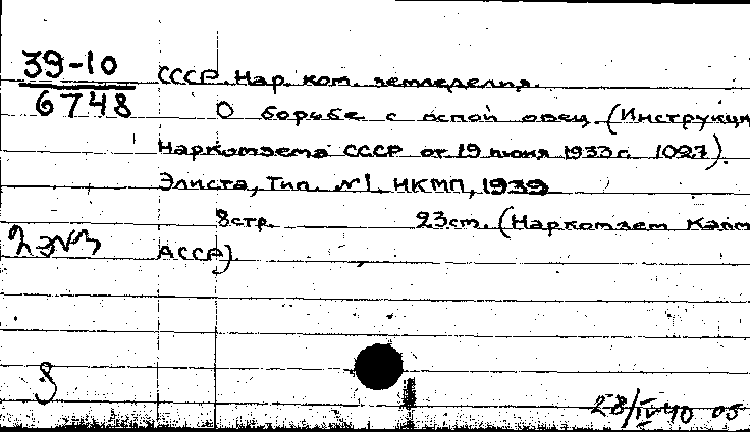 39-10
6748
СССР. Нар. ком. земледелия.
О борьбе с оспой овец. (Инструкци
Наркомзема СССР от 19 июня 1933 г. 1027).
Элиста, Тип. №1. НКМП, 1939
8стр. 23см. (Наркомзем Калм
АССР)
2 экз
28/IV 40 05